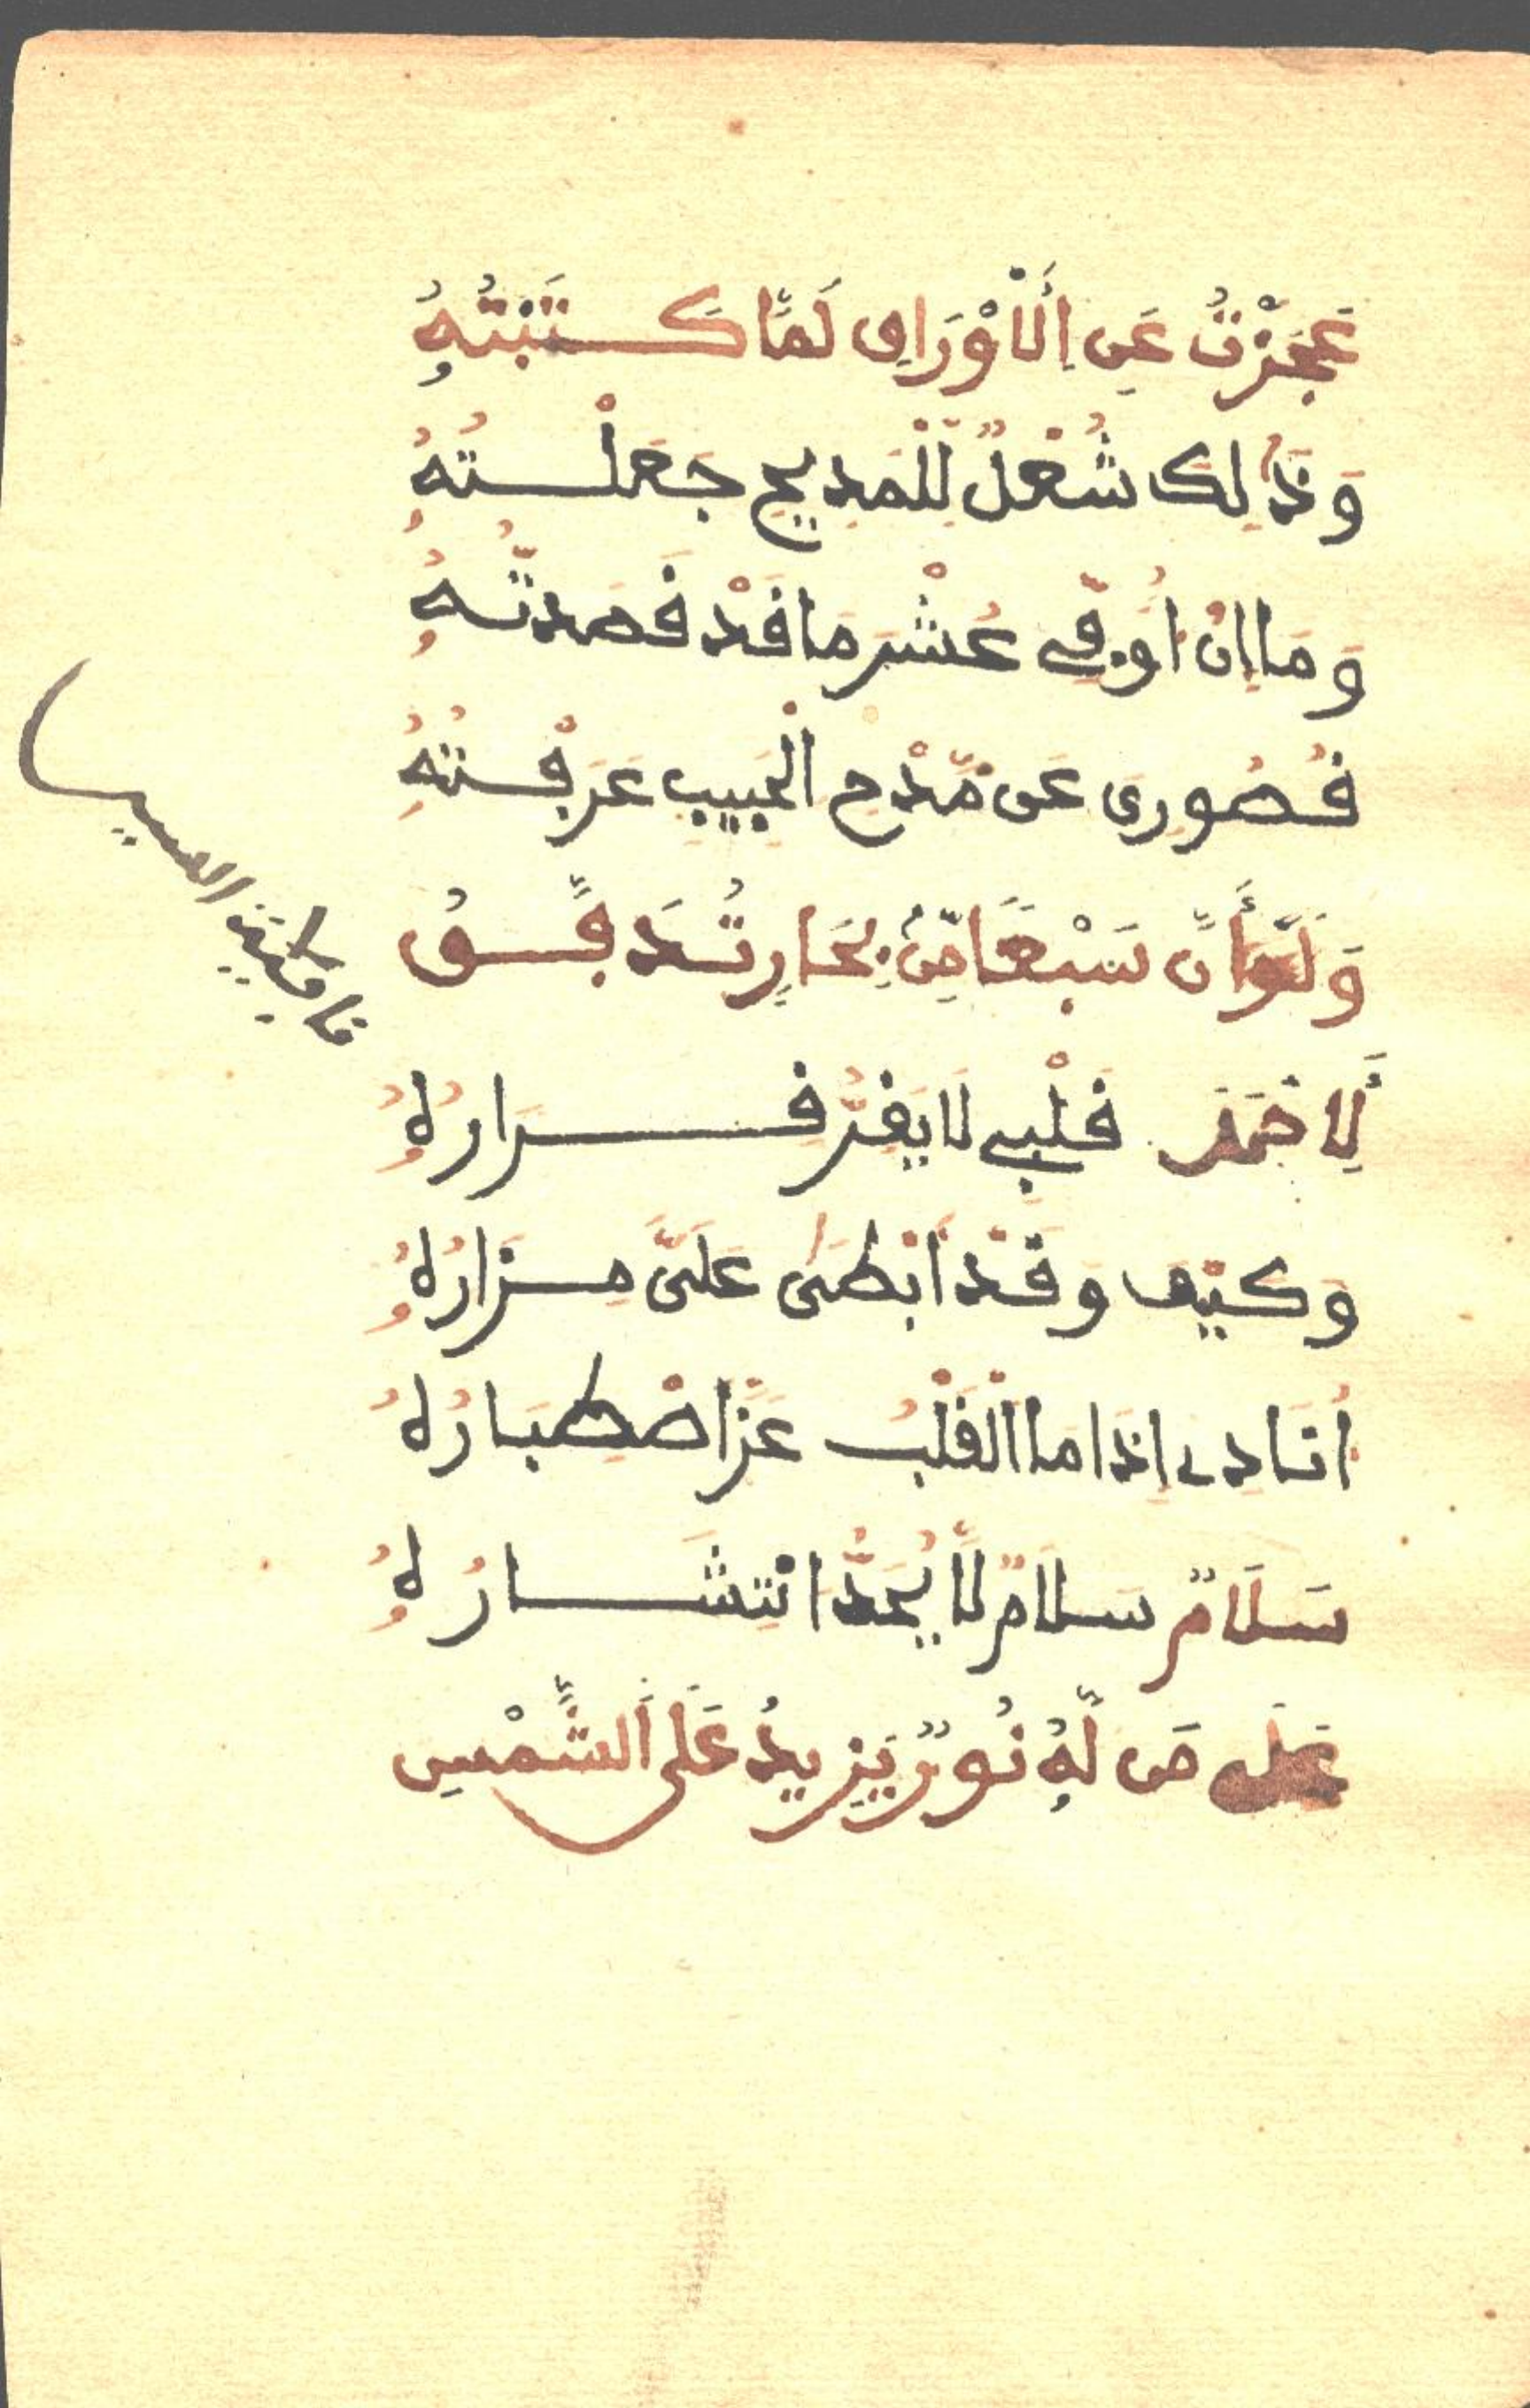 عَجَزْتُ عَنِ اِلَاوْرَاقِ لَمَّا كَتَبْتُهُ
وَذَٰلِكَ شُغْلٌ لِّلْمَدِيحِ جَعَلْتُهُ
وَمَا اِنْ اُوَفِّي عُشْرَ مَا قَدْ قَصَدتُّهُ
قُصُورِي عَن مَّدْحِ الْحَبِيبِ عَرَفْتُهُ
وَلَوْ أَنَّ سَبْعًا مِّنْ بِحَارٍ تُدَفَّقُ
لِأَحْمَدَ قَلْبِي لَا يَقِرُّ قَرَارُهُ
وَكَيْفَ وَقَدْ اَبْطَىٰ عَلَيَّ مَزَارُهُ
اُنَادِي اِذَا مَا الْقَلْبُ عَزَّ اصْطِبَارُهُ
سَلَامٌ سَلَامٌ لَّا يُحَدُّ انْتِشَارُهُ
عَلَى مَن لَّهُ نُورٌ يَزِيدُ عَلَى الشَّمْسِ
قافية السين